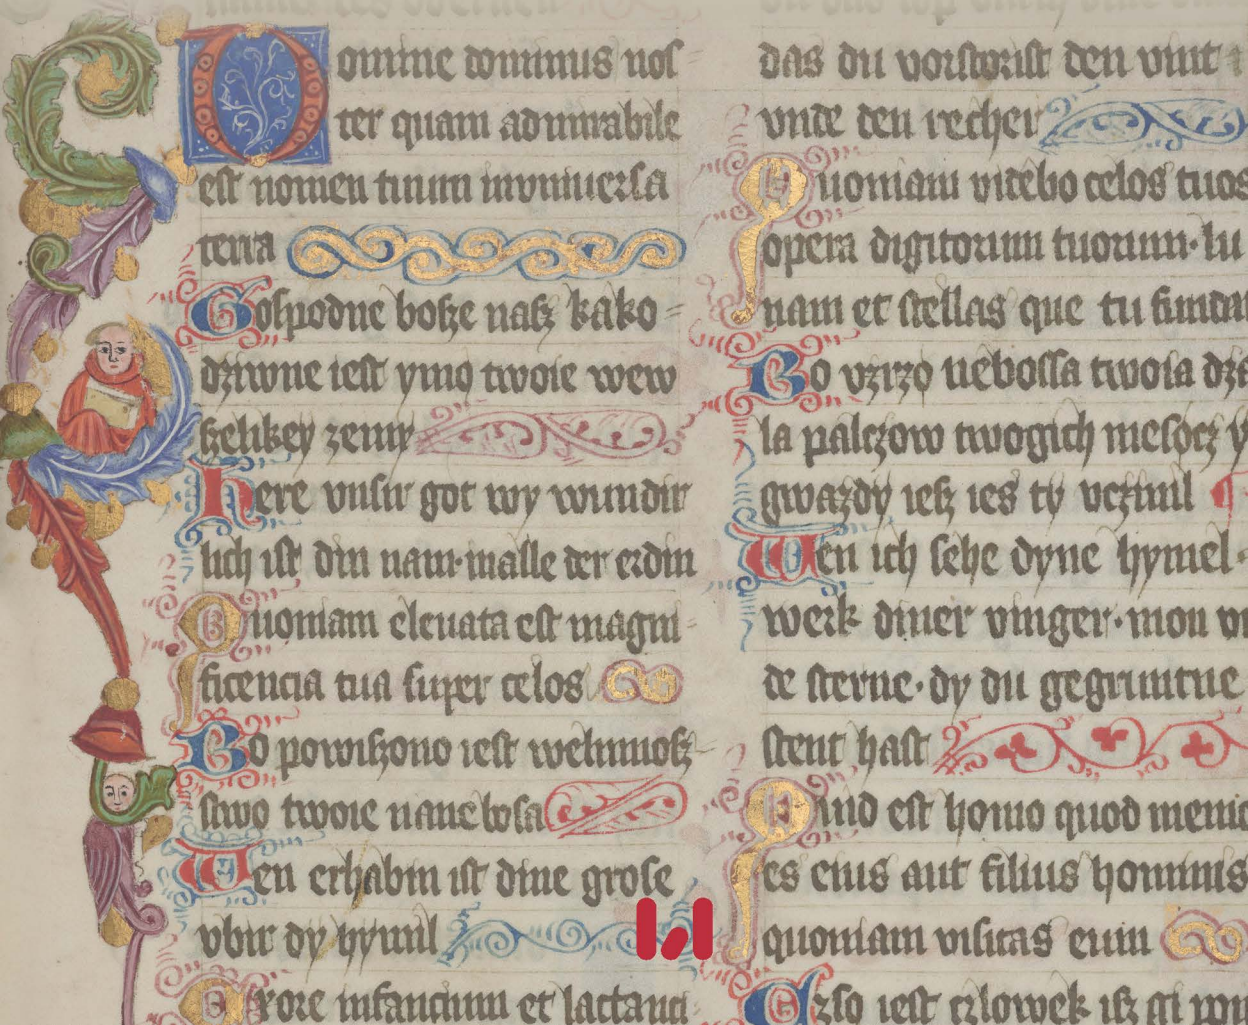 Domine dominus nos=
ter quam admirabile
est nomen tuum in vniuersa
terra
Gospodne bosze nasz kako=
dziwne iest ymo twoie wew
szelikey zemy
here vnsir got wy wundir
lich ist din nam·in alle der erdin
Quoniam eleuata est magni=
ficencia tua super celos
Bo powiszono iest welmnosz=
stwo twoie na nebosa
Wen erhabin ist dine grose
vbir dy hymil
Exore infancium et lactanci
das du vorstorist den vint
vnde den recher
Quoniam videbo celos tuos
opera digitorum tuorum·lu
nam et stellas que tu funda
Bo vzrzo nebossa twoia dze
la palczow twogich mesocz y
gwazdy iesz ies ty vczinil
Wen ich sehe dyne hymel·
werk diner vinger·mon vn
de sterne·dy du gegruntue
stent hast
Quid est homo quod memo
es eius aut filius hominis
quoniam visitas eum
Czso iest czlowek isz gi pom